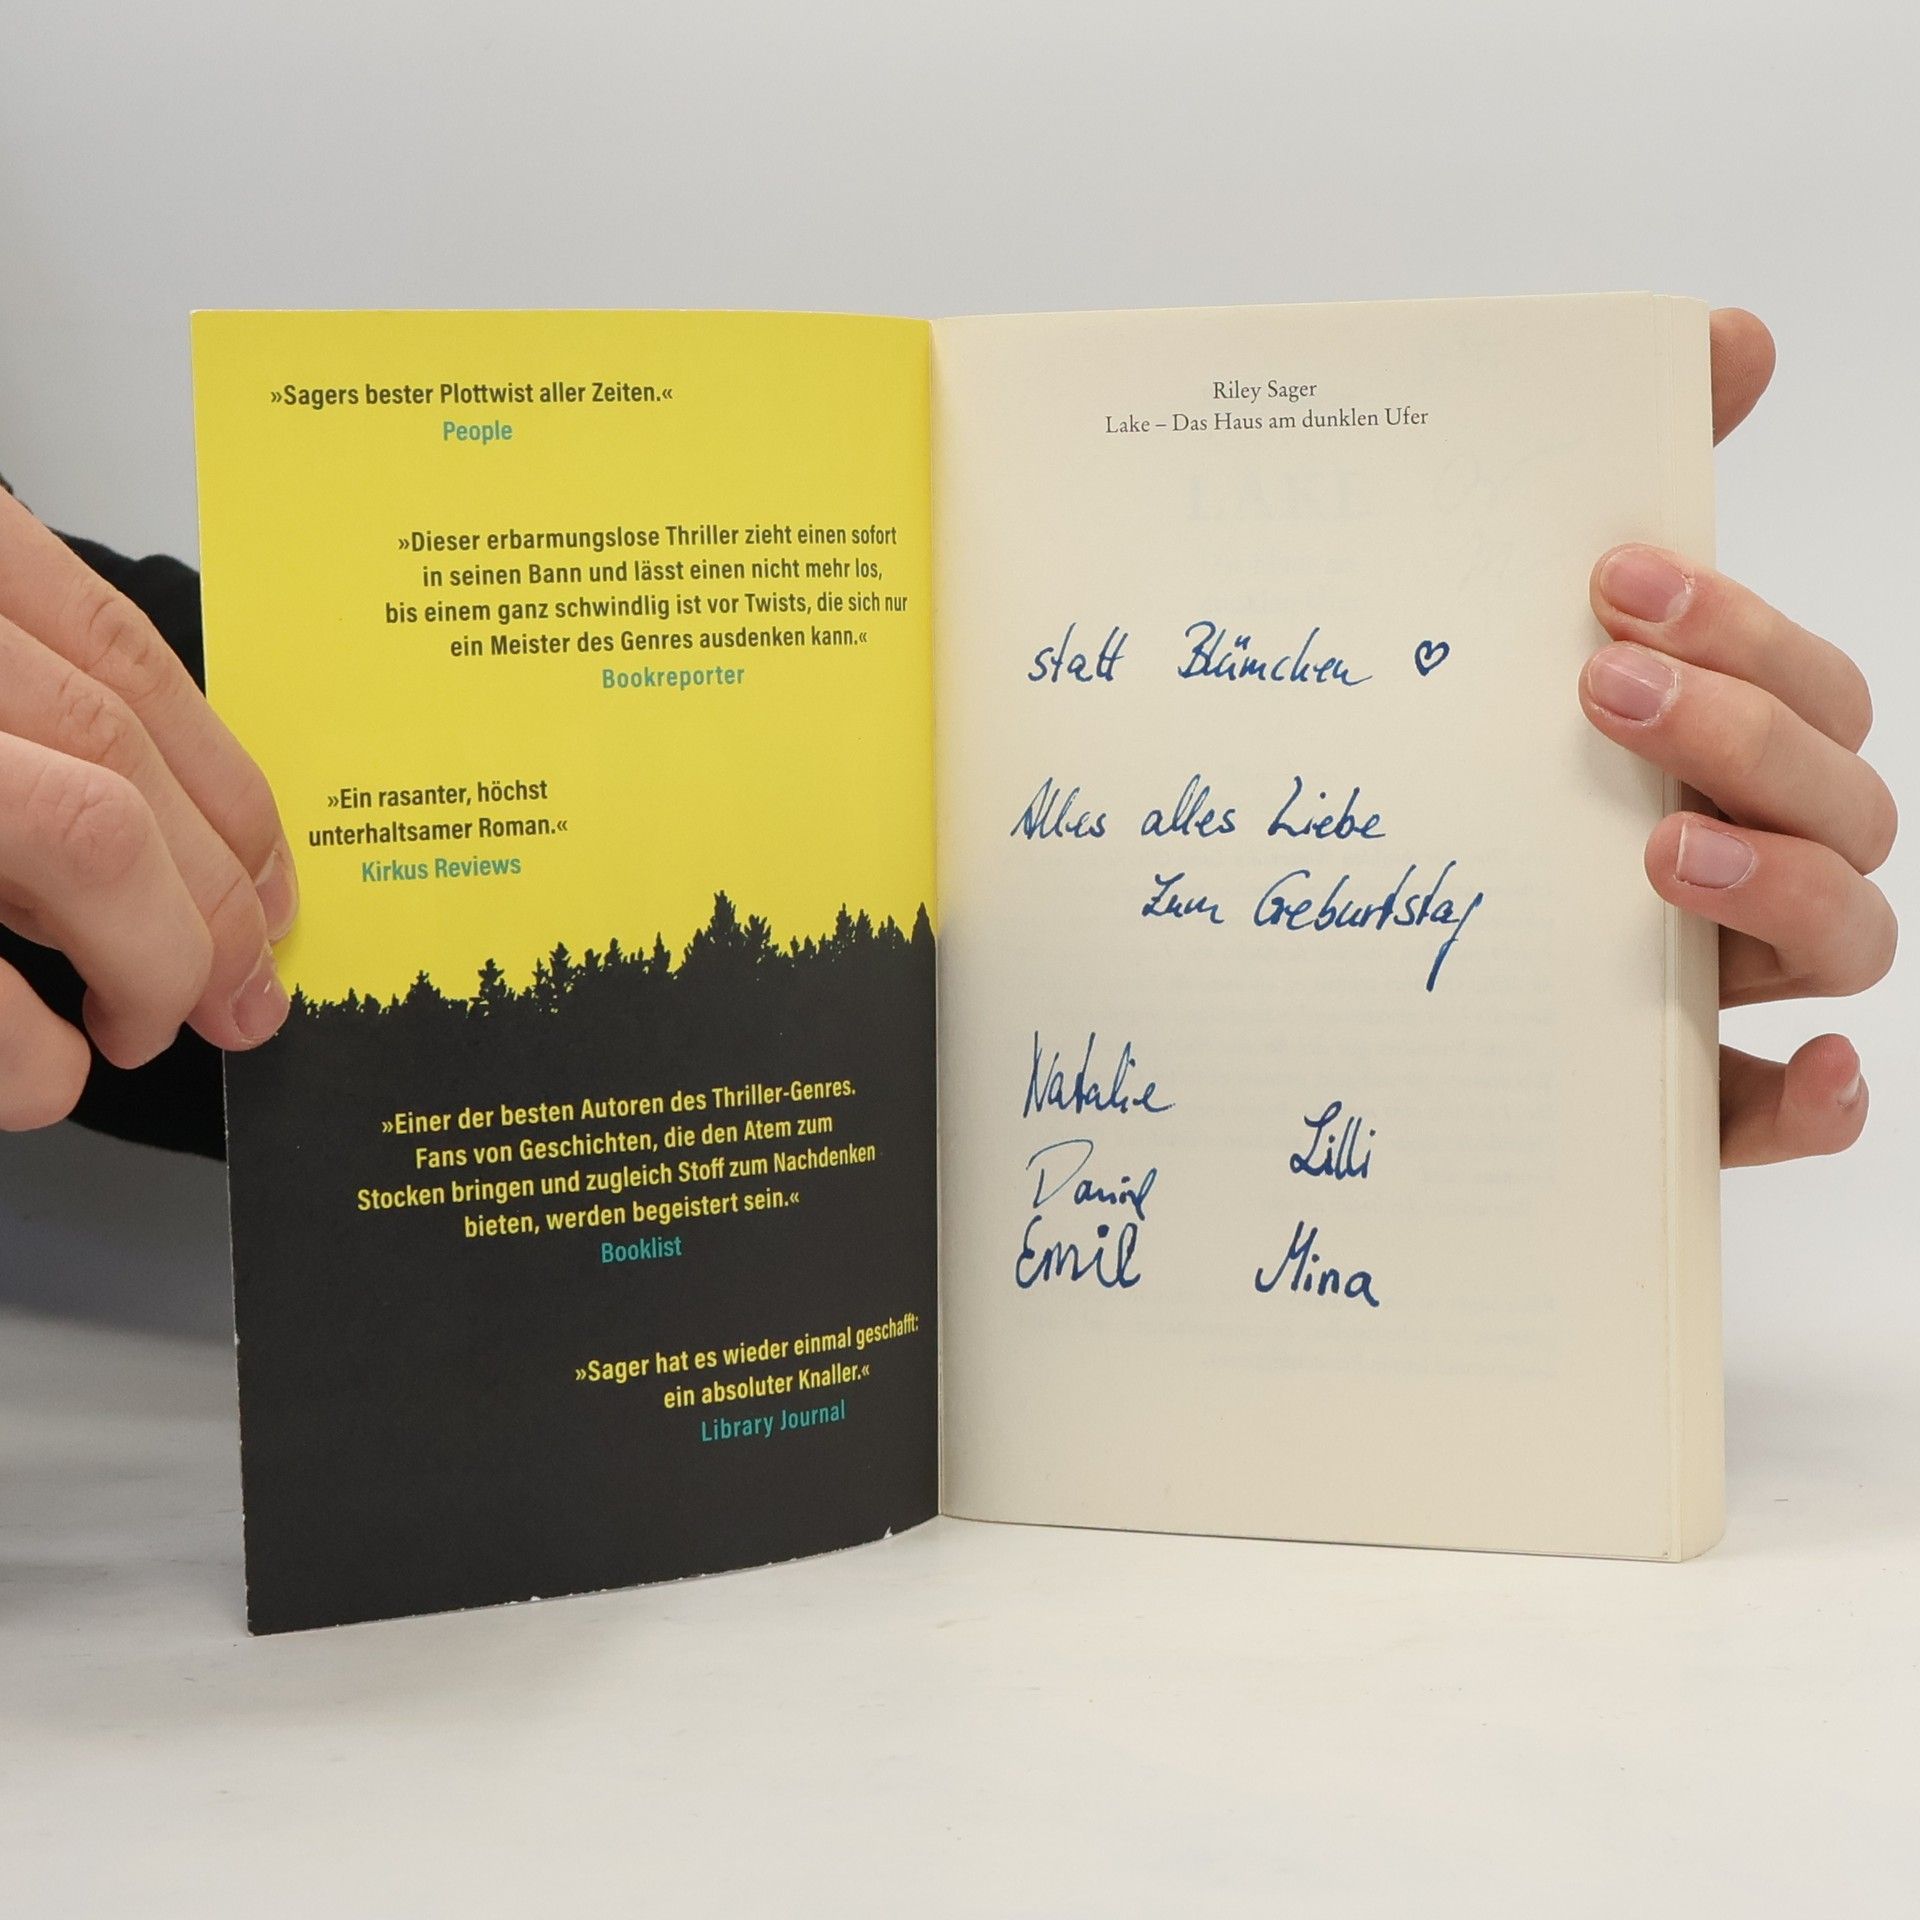 »Sagers bester Plottwist aller Zeiten.«
People
»Dieser erbarmungslose Thriller zieht einen sofort
in seinen Bann und lässt einen nicht mehr los,
bis einem ganz schwindlig ist vor Twists, die sich nur
ein Meister des Genres ausdenken kann.«
Bookreporter
»Ein rasanter, höchst
unterhaltsamer Roman.«
Kirkus Reviews
»Einer der besten Autoren des Thriller-Genres.
Fans von Geschichten, die den Atem zum
Stocken bringen und zugleich Stoff zum Nachdenken
bieten, werden begeistert sein.«
Booklist
»Sager hat es wieder einmal geschafft:
ein absoluter Knaller.«
Library Journal
Riley Sager
Lake – Das Haus am dunklen Ufer
statt Blümchen ♡
Alles alles Liebe
zum Geburtstag
Natalie
Lilli
Daniel
Emil
Mina